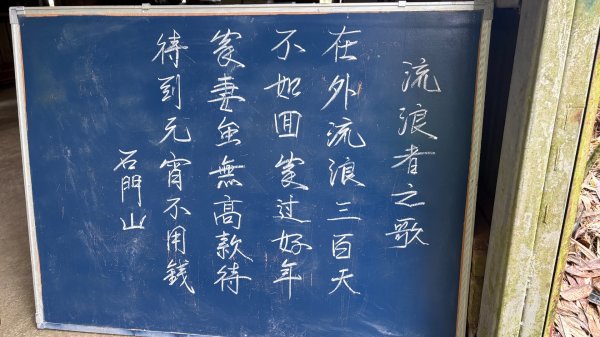 流浪者之歌
在外流浪三百天
不如回家过好年
家妻虽無高款待
待到元宵不用錢
石門山